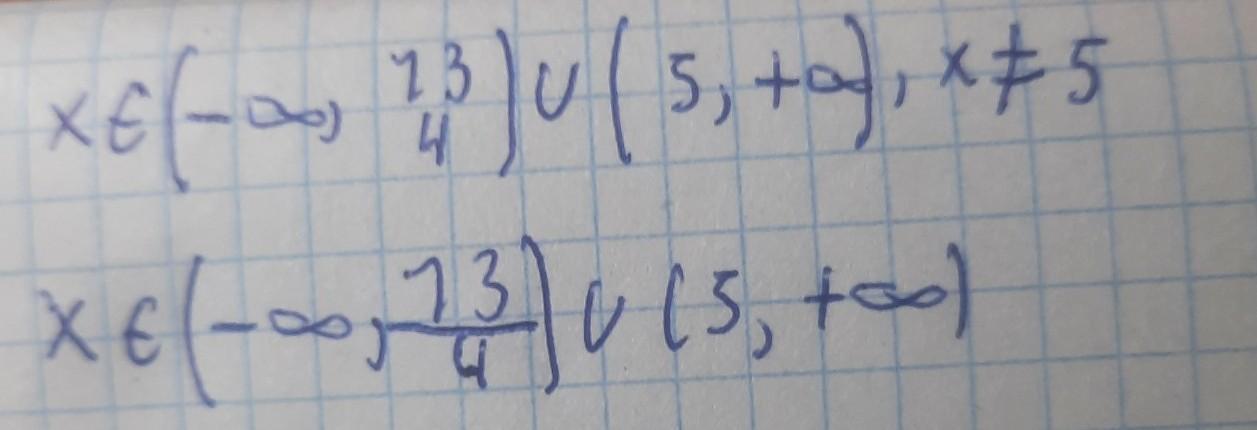 x ∈ (-∞, 13/4) ∪ (5, +∞), x ≠ 5
x ∈ (-∞, 13/4) ∪ (5, +∞)